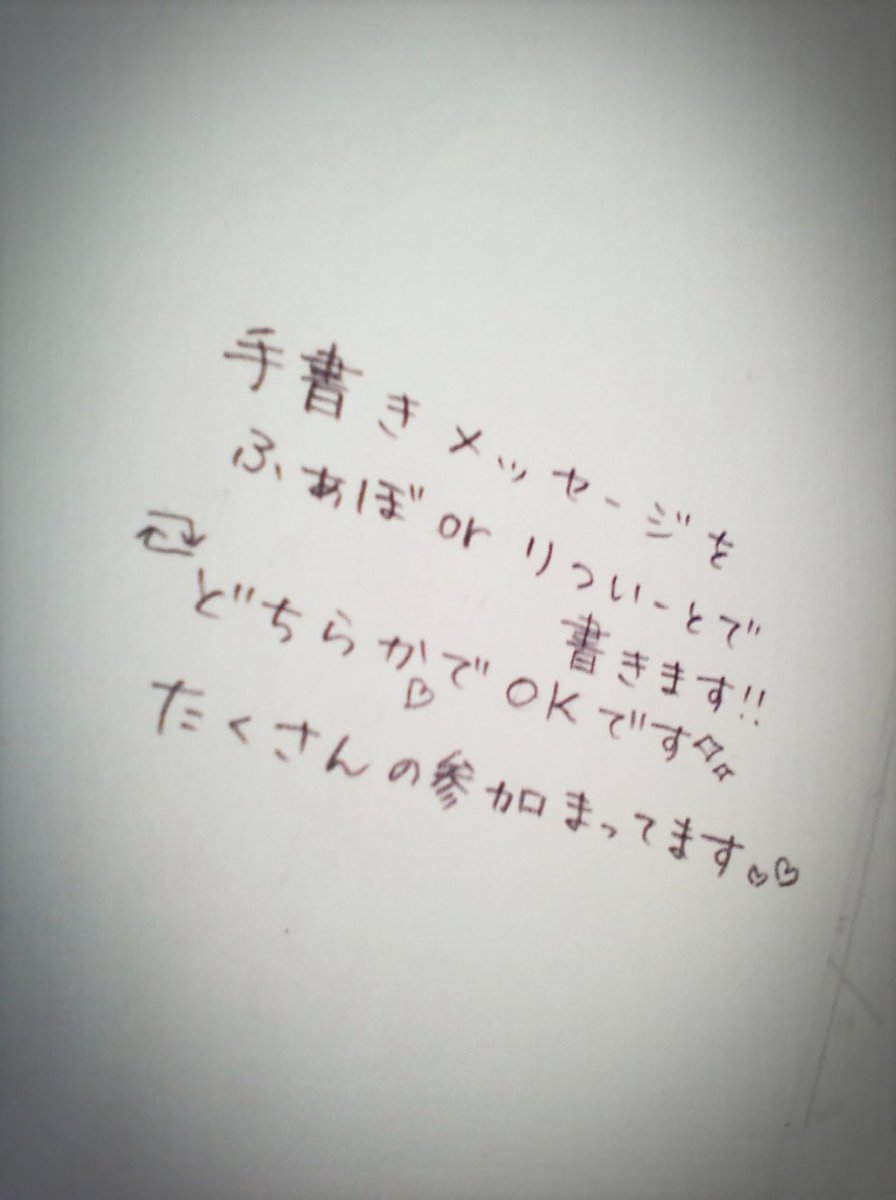 手書きメッセージを
ふぁぼ or りついーとで
書きます!!
どちらかでOKです
たくさんの参加まってます